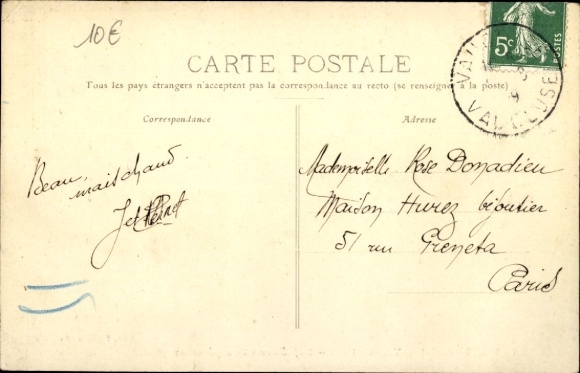 10€
5c
POSTES
VAUCLUSE
9
CARTE POSTALE
Tous les pays étrangers n'acceptent pas la correspondance au recto (se renseigner à la poste)
Correspondance
Adresse
Beau,
mais chaud.
Mademoiselle Rose Donadieu
Maison Hurez bijoutier
51 rue Greneta
Paris